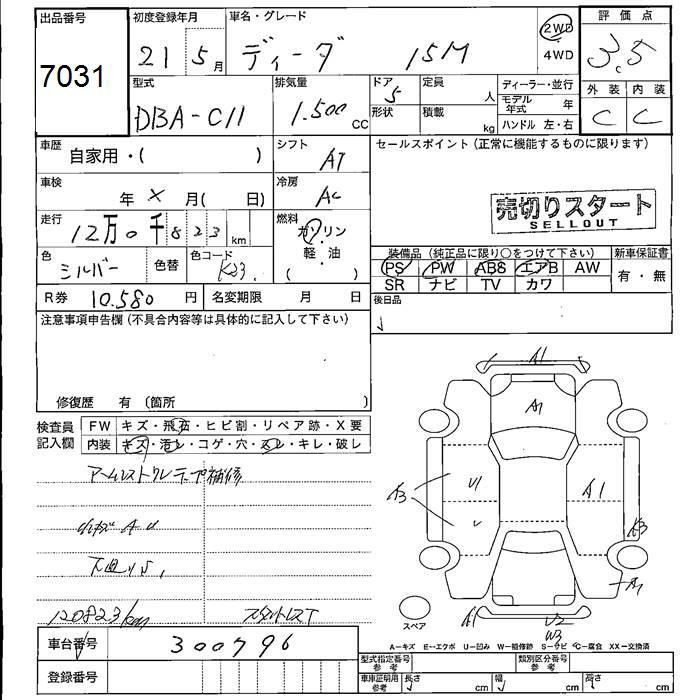 出品番号
7031
初度登録年月
21 5月
車名・グレード
ティーダ 15M
2WD
4WD
評価点
3.5
外装 内装
C C
型式
DBA-C11
排気量
1.500 CC
ドア 5
形状
定員 人
積載 kg
ディーラー・並行
モデル年式 年
ハンドル 左・右
車歴
自家用・( )
シフト
AT
車検
年 X 月( 日)
冷房
AC
走行
12万0千823km
燃料
ガソリン
・
軽・油
( )
色
シルバー
色替
色コード
K23
R券 10.580円
名変期限 月 日
セールスポイント(正常に機能するものに限ります)
売切りスタート
SELLOUT
装備品(純正品に限り○をつけて下さい)
PS PW ABS エアB AW
SR ナビ TV カワ
新車保証書
有・無
後日品
注意事項申告欄(不具合内容等は具体的に記入して下さい)
修復歴 有(箇所 )
検査員
記入欄
FW キズ・飛石・ヒビ割・リペア跡・X要
内装 キズ・汚レ・コゲ・穴・スレ・キレ・破レ
アームレストワレテープ補修
小キズ A U
下廻りS,
120823km
スタットレスT
A1
A1
A3
U1
A1
A3
A1
A1
U2
W3
スペア
A-キズ E-エクボ U-凹み W-補修跡 S-サビ C-腐食 XX-交換済
車台番号 300796
登録番号
型式指定番号
参考
類別区分番号
参考
車庫証明用
参考
長さ cm
幅 cm
高さ cm